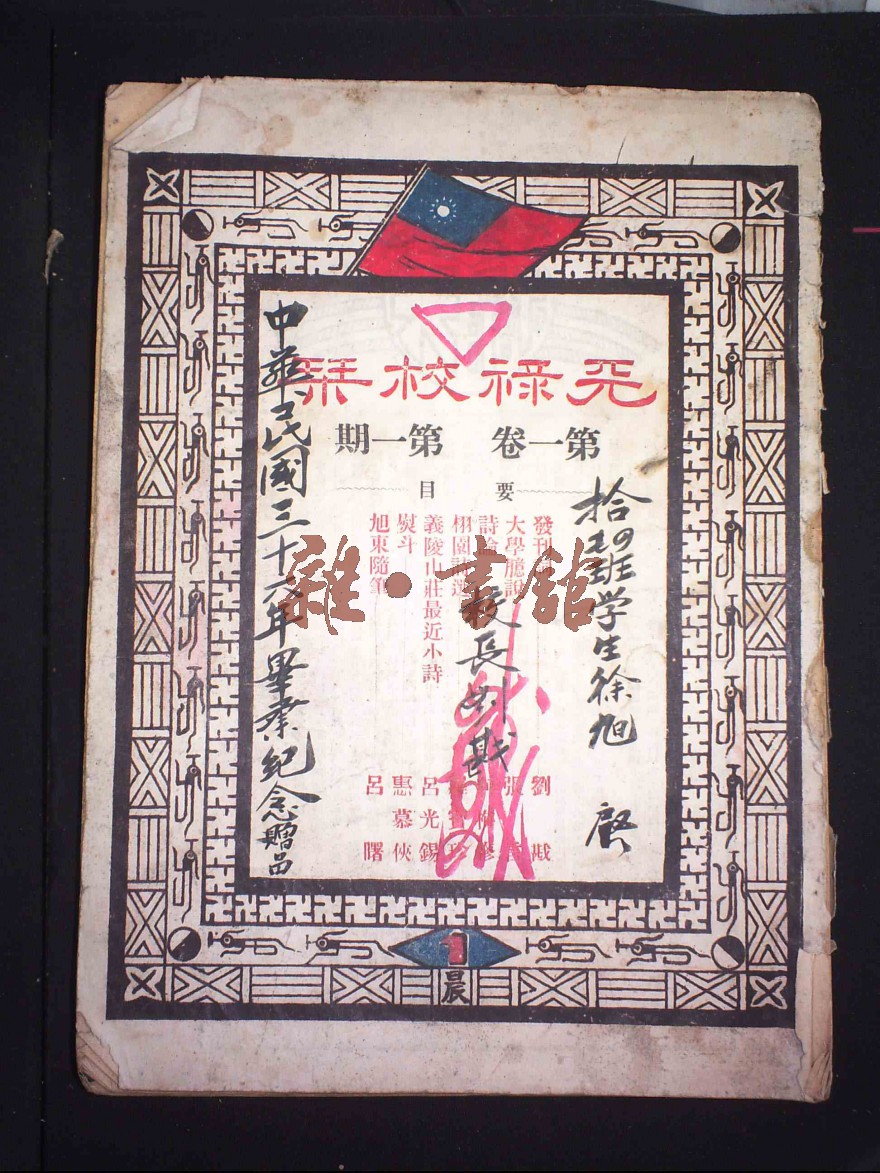 祿校栞
第一卷 第一期
要目
發刊
大學臆說
詩論
栩園詩選
義陵山莊最近小詩
熨斗
旭東隨筆
劉戡
張
呂光錫
惠慕俠
呂曙
学生徐旭 啓
校長劉戡
中華民國三十六年畢業紀念贈品
雜·書館
1
晨